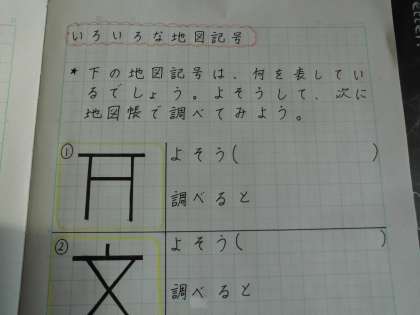 いろいろな地図記号
* 下の地図記号は、何を表してい
るでしょう。よそうして、次に
地図帳で調べてみよう。
① よそう( )
調べると
② 文 よそう( )
調べると